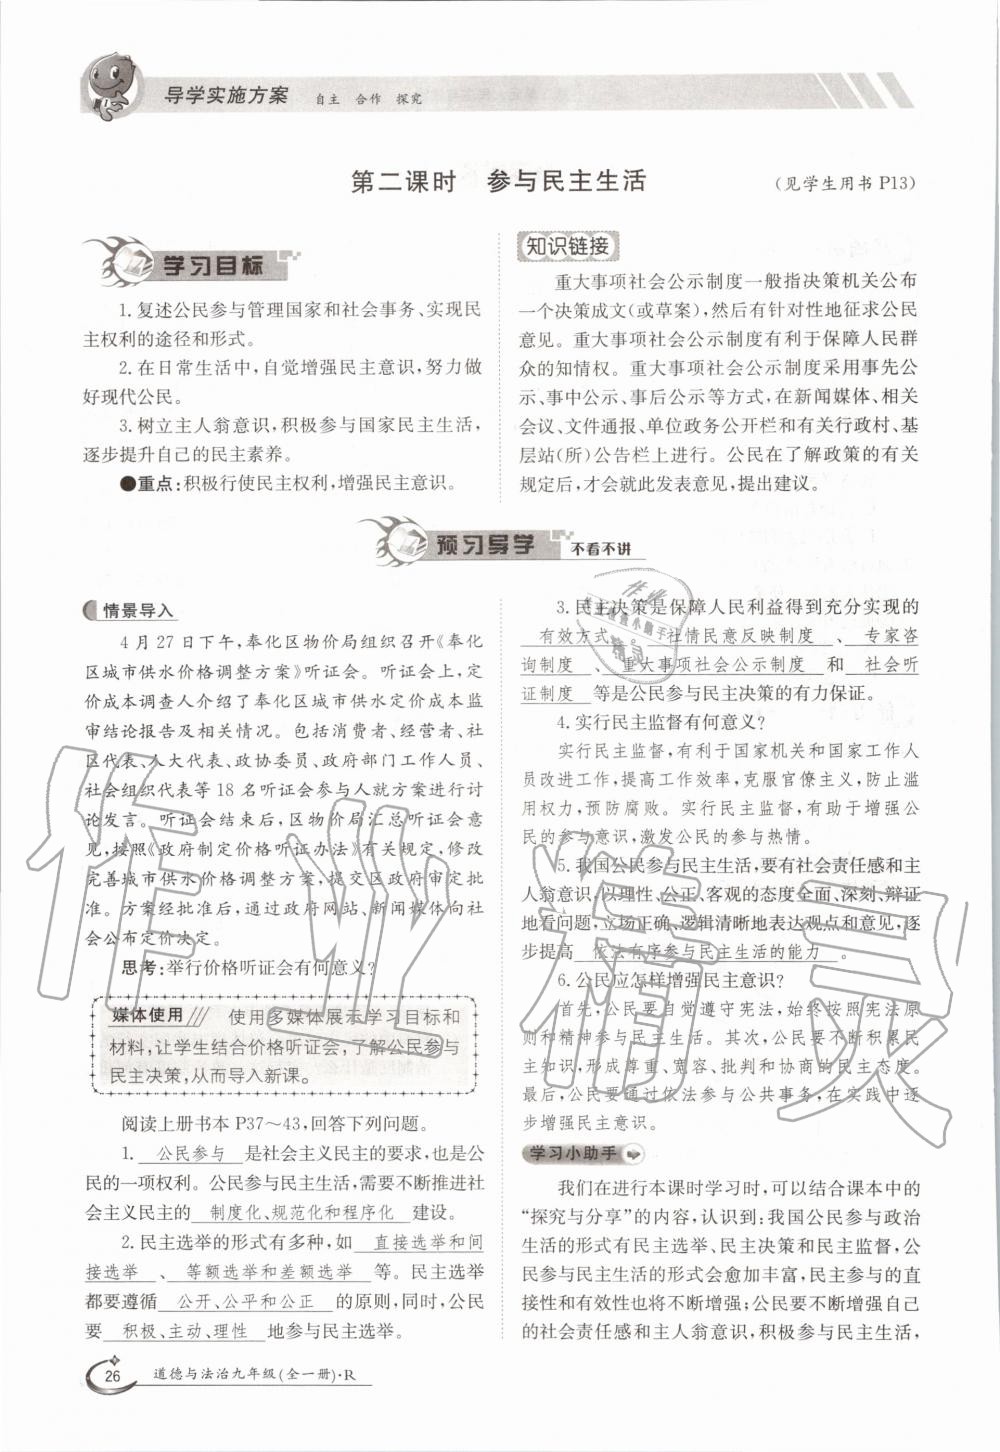 导学实施方案 自主 合作 探究
第二课时 参与民主生活
(见学生用书 P13)
学习目标
1.复述公民参与管理国家和社会事务、实现民
主权利的途径和形式。
2.在日常生活中,自觉增强民主意识,努力做
好现代公民。
3.树立主人翁意识,积极参与国家民主生活,
逐步提升自己的民主素养。
●重点:积极行使民主权利,增强民主意识。
知识链接
重大事项社会公示制度一般指决策机关公布
一个决策成文(或草案),然后有针对性地征求公民
意见。重大事项社会公示制度有利于保障人民群
众的知情权。重大事项社会公示制度采用事先公
示、事中公示、事后公示等方式,在新闻媒体、相关
会议、文件通报、单位政务公开栏和有关行政村、基
层站(所)公告栏上进行。公民在了解政策的有关
规定后,才会就此发表意见,提出建议。
预习导学 不看不讲
情景导入
4月27日下午,奉化区物价局组织召开《奉化
区城市供水价格调整方案》听证会。听证会上,定
价成本调查人介绍了奉化区城市供水定价成本监
审结论报告及相关情况。包括消费者、经营者、社
区代表、人大代表、政协委员、政府部门工作人员、
社会组织代表等18名听证会参与人就方案进行讨
论发言。听证会结束后,区物价局汇总听证会意
见,按照《政府制定价格听证办法》有关规定,修改
完善城市供水价格调整方案,提交区政府审定批
准。方案经批准后,通过政府网站、新闻媒体向社
会公布定价决定。
思考:举行价格听证会有何意义?
媒体使用 使用多媒体展示学习目标和
材料,让学生结合价格听证会,了解公民参与
民主决策,从而导入新课。
阅读上册书本P37~43,回答下列问题。
1. 公民参与 是社会主义民主的要求,也是公
民的一项权利。公民参与民主生活,需要不断推进社
会主义民主的 制度化、规范化和程序化 建设。
2.民主选举的形式有多种,如 直接选举和间
接选举 、 等额选举和差额选举 等。民主选举
都要遵循 公开、公平和公正 的原则,同时,公民
要 积极、主动、理性 地参与民主选举。
3.民主决策是保障人民利益得到充分实现的
有效方式 社情民意反映制度 、 专家咨
询制度 、 重大事项社会公示制度 和 社会听
证制度 等是公民参与民主决策的有力保证。
4.实行民主监督有何意义?
实行民主监督,有利于国家机关和国家工作人
员改进工作,提高工作效率,克服官僚主义,防止滥
用权力,预防腐败。实行民主监督,有助于增强公
民的参与意识,激发公民的参与热情。
5.我国公民参与民主生活,要有社会责任感和主
人翁意识,以理性、公正、客观的态度全面、深刻、辩证
地看问题,立场正确、逻辑清晰地表达观点和意见,逐
步提高 依法有序参与民主生活的能力 。
6.公民应怎样增强民主意识?
首先,公民要自觉遵守宪法,始终按照宪法原
则和精神参与民主生活。其次,公民要不断积累民
主知识,形成尊重、宽容、批判和协商的民主态度。
最后,公民要通过依法参与公共事务,在实践中逐
步增强民主意识。
学习小助手
我们在进行本课时学习时,可以结合课本中的
“探究与分享”的内容,认识到:我国公民参与政治
生活的形式有民主选举、民主决策和民主监督,公
民参与民主生活的形式会愈加丰富,民主参与的直
接性和有效性也将不断增强;公民要不断增强自己
的社会责任感和主人翁意识,积极参与民主生活,
26 道德与法治九年级(全一册)·R
作业精灵